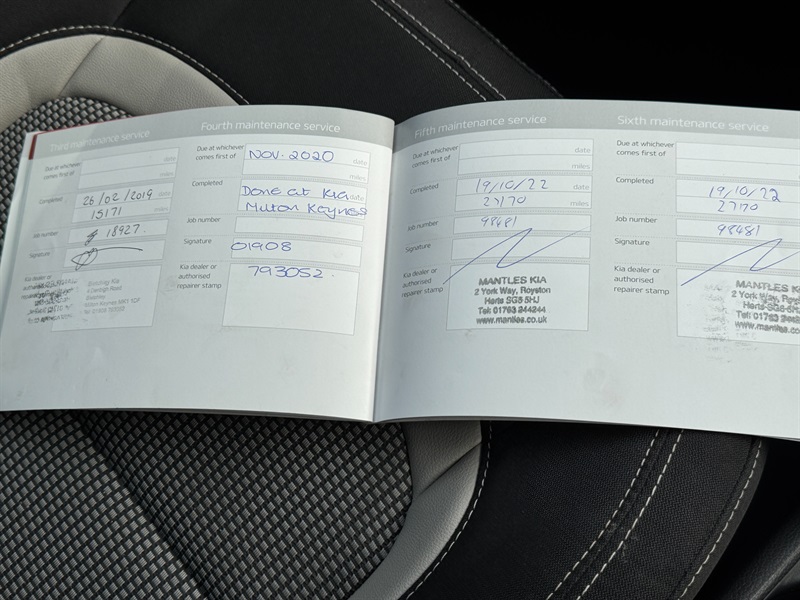 Third maintenance service
Due at whichever
comes first of
date
miles
Completed
26/02/2019 date
15171 miles
Job number
18927.
Signature
Kia dealer or
authorised
repairer stamp
Fourth maintenance service
Due at whichever
comes first of
NOV. 2020 date
miles
Completed
Done at Kia date
Milton Keynes
Job number
Signature
01908
Kia dealer or
authorised
repairer stamp
793052.
Fifth maintenance service
Due at whichever
comes first of
date
miles
Completed
19/10/22 date
27170 miles
Job number
98481
Signature
Kia dealer or
authorised
repairer stamp
MANTLES KIA
2 York Way, Royston
Herts SG8 5HJ
Tel: 01763 244244
www.mantles.co.uk
Sixth maintenance service
Due at whichever
comes first of
Completed
19/10/22
27170
Job number
98481
Signature
Kia dealer or
authorised
repairer stamp
MANTLES K
2 York Way, Roys
Herts SG8 5H
Tel: 01763 244
www.mantles.co